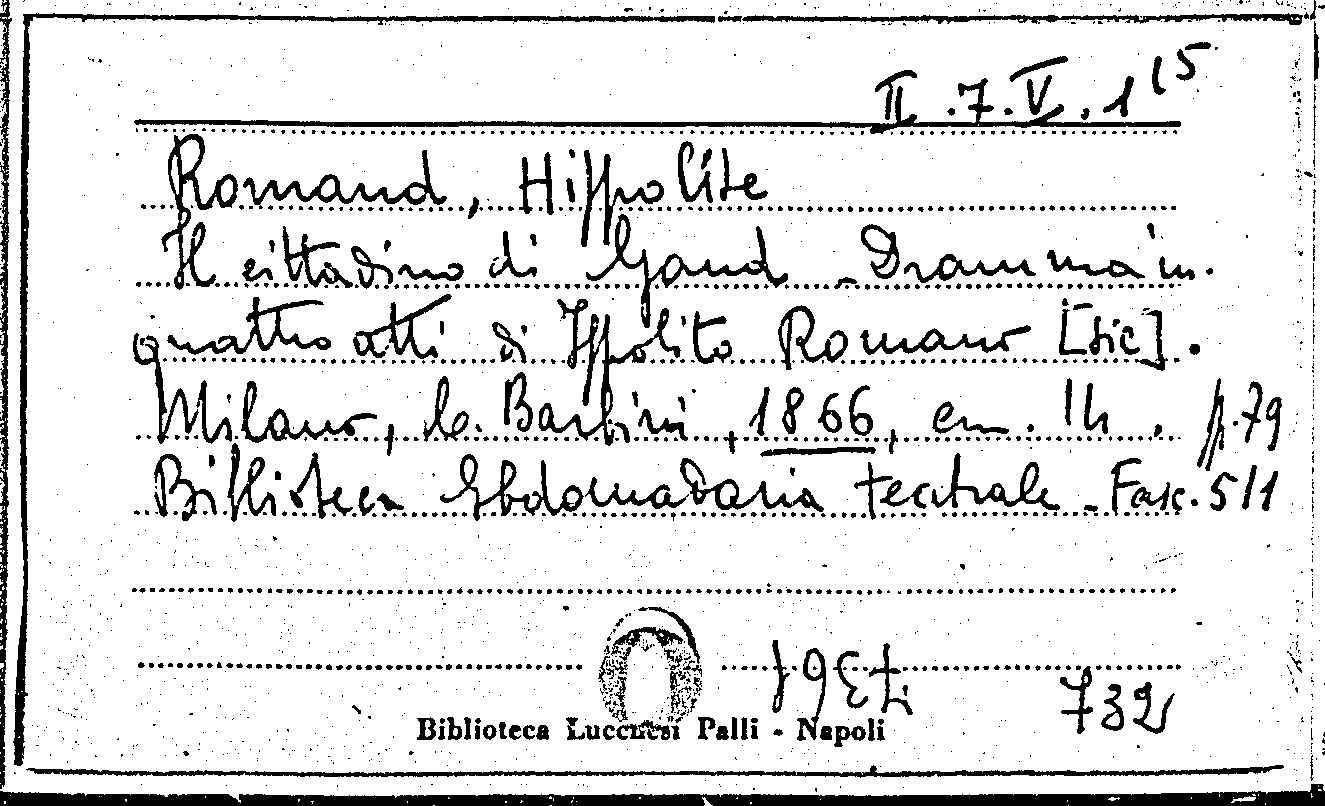 II.7.V.1 (5
Romand, Hippolite
Il cittadino di Gand - Dramma in
quattro atti di Ippolito Romano [sic].
Milano, C. Barbini, 1866, cm. 14. p. 79
Biblioteca Ebdomadaria teatrale - Fasc. 511
732
Biblioteca Lucchesi Palli - Napoli